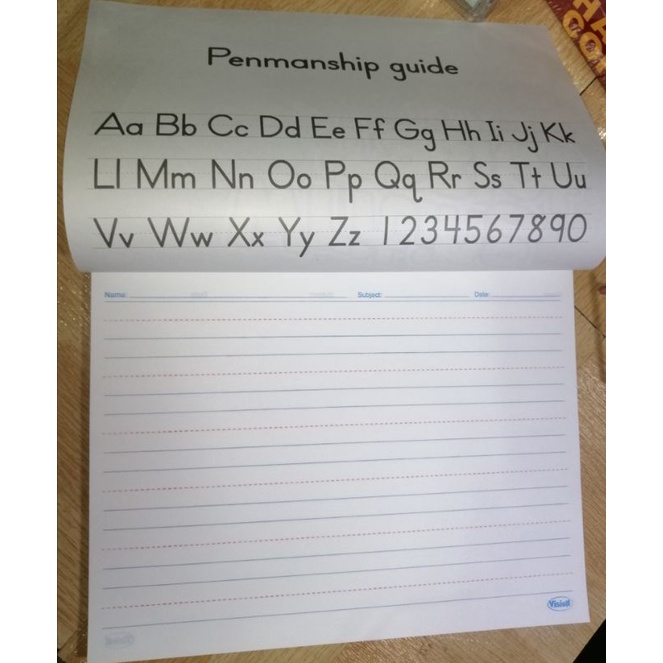 Penmanship guide
Aa Bb Cc Dd Ee Ff Gg Hh Ii Jj Kk
Ll Mm Nn Oo Pp Qq Rr Ss Tt Uu
Vv Ww Xx Yy Zz 1234567890
Name: Subject: Date: